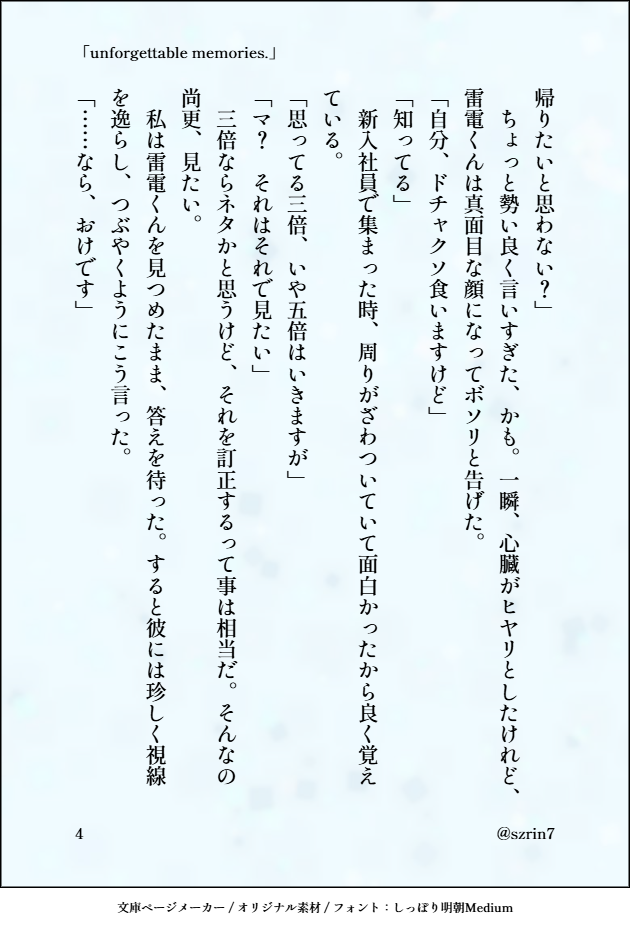 「unforgettable memories.」
帰りたいと思わない？」
　ちょっと勢い良く言いすぎた、かも。一瞬、心臓がヒヤリとしたけれど、
雷電くんは真面目な顔になってボソリと告げた。
「自分、ドチャクソ食いますけど」
「知ってる」
　新入社員で集まった時、周りがざわついていて面白かったから良く覚え
ている。
「思ってる三倍、いや五倍はいきますが」
「マ？　それはそれで見たい」
　三倍ならネタかと思うけど、それを訂正するって事は相当だ。そんなの
尚更、見たい。
　私は雷電くんを見つめたまま、答えを待った。すると彼には珍しく視線
を逸らし、つぶやくようにこう言った。
「……なら、おけです」
4
@szrin7
文庫ページメーカー / オリジナル素材 / フォント：しっぽり明朝Medium